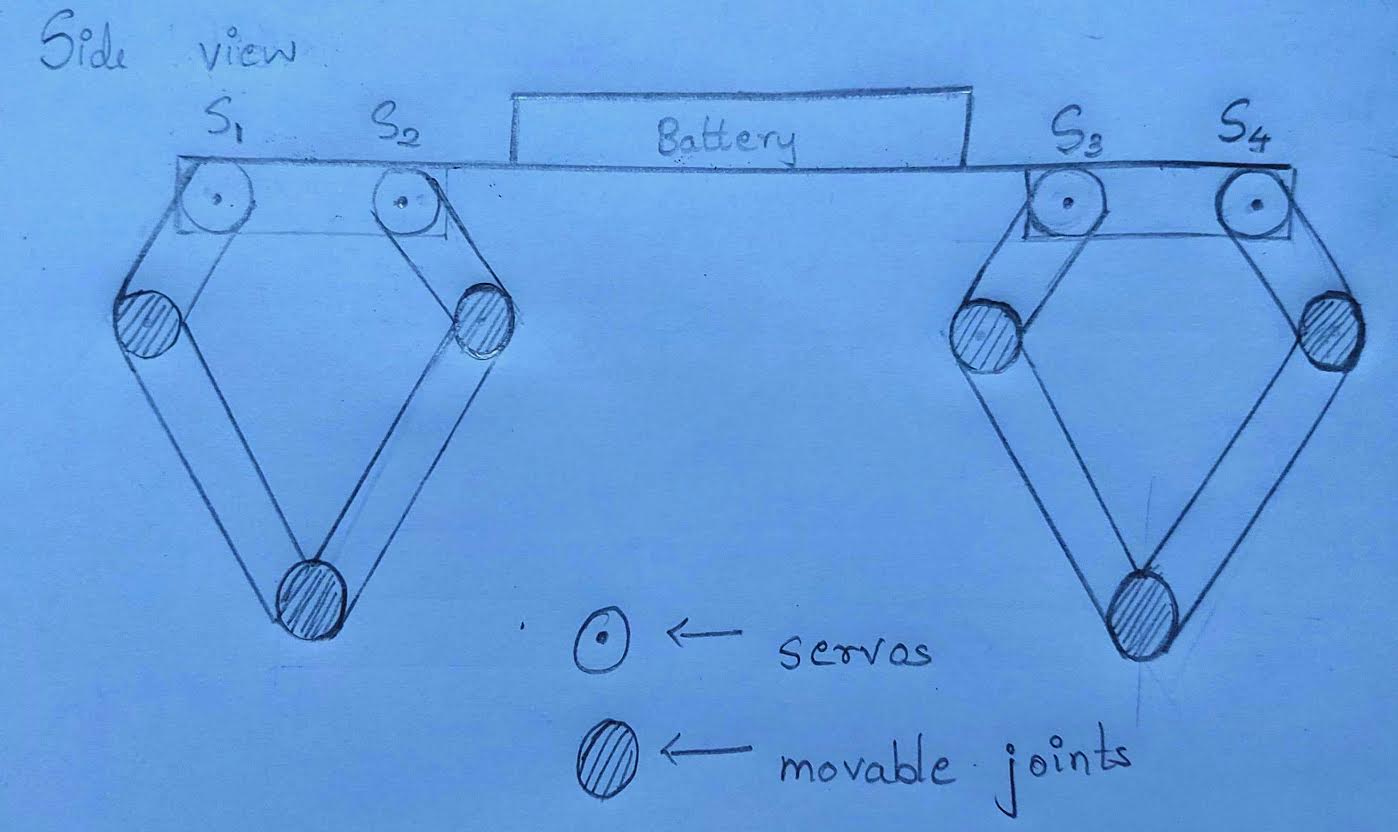 Side view
S1 S2 Battery S3 S4
servos
movable joints